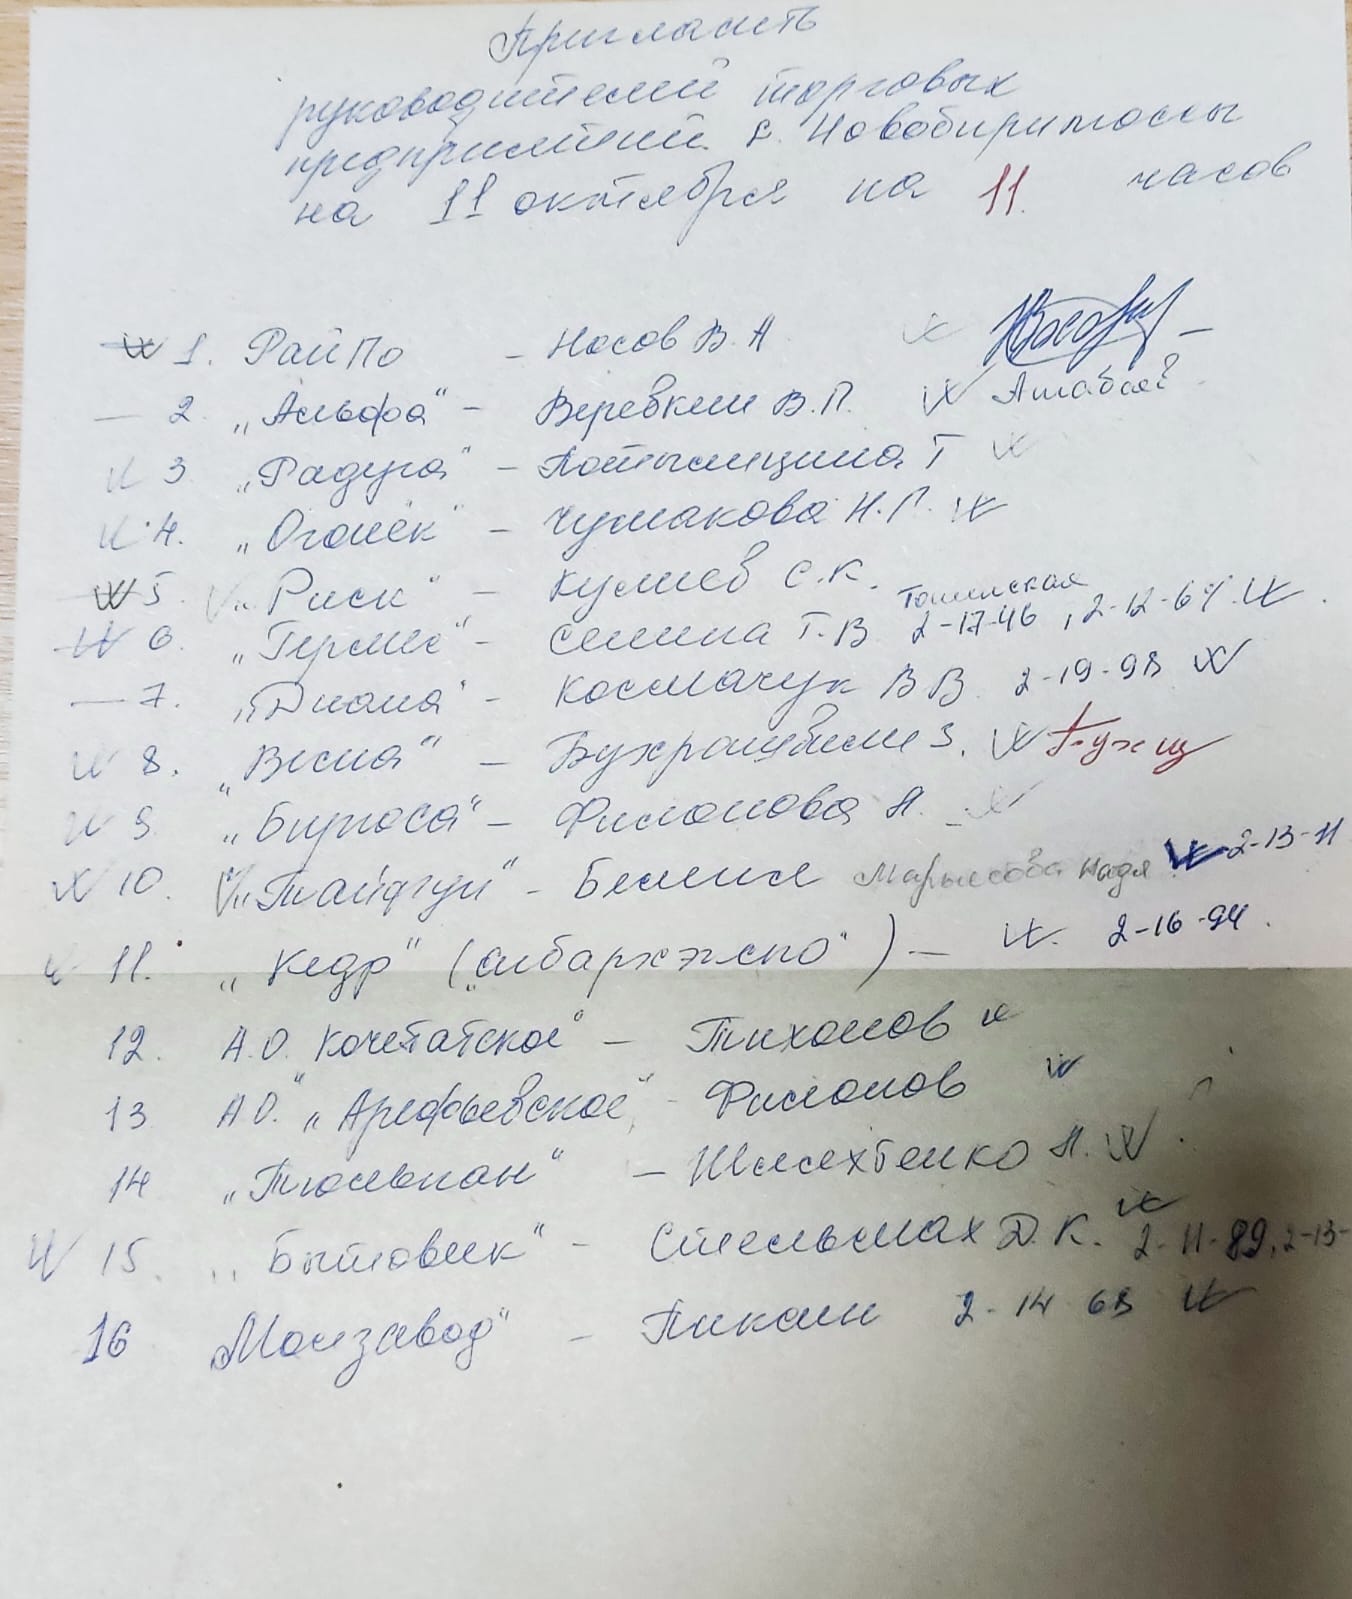 Пригласить
руководителей торговых
предприятий с. Новобирилюссы
на 11 октября на 11 часов
1. РайПо - Носов В. А
2 „Альфа" - Веревкин В. П.
3 „Радуга" - Потылицина Г
4. „Огонёк" - Чумакова Н. Г.
5 „Риск" - Кулиев С. К.
6. „Гермес" - Селина Г. В 2-17-46, 2-12-67
7. „Диана" - Космачук В В 2-19-98
8. „Весна" - З.
9 „Бирюса" - Филонова Н.
10. „Тайфун" - Беленя Марьясова Надя 2-13-11
11. „Кедр" ( ) - 2-16-94.
12. А.О. Кочетатское" - Тихонов
13 А.О. „Арефьевское" - Филонов
14 „Тюльпан" - Шляхтенко Н.
15. „Бытовик" - Стельмах Д. К. 2-11-89, 2-13-
16 Молзавод" - Пикалин 2-14 68